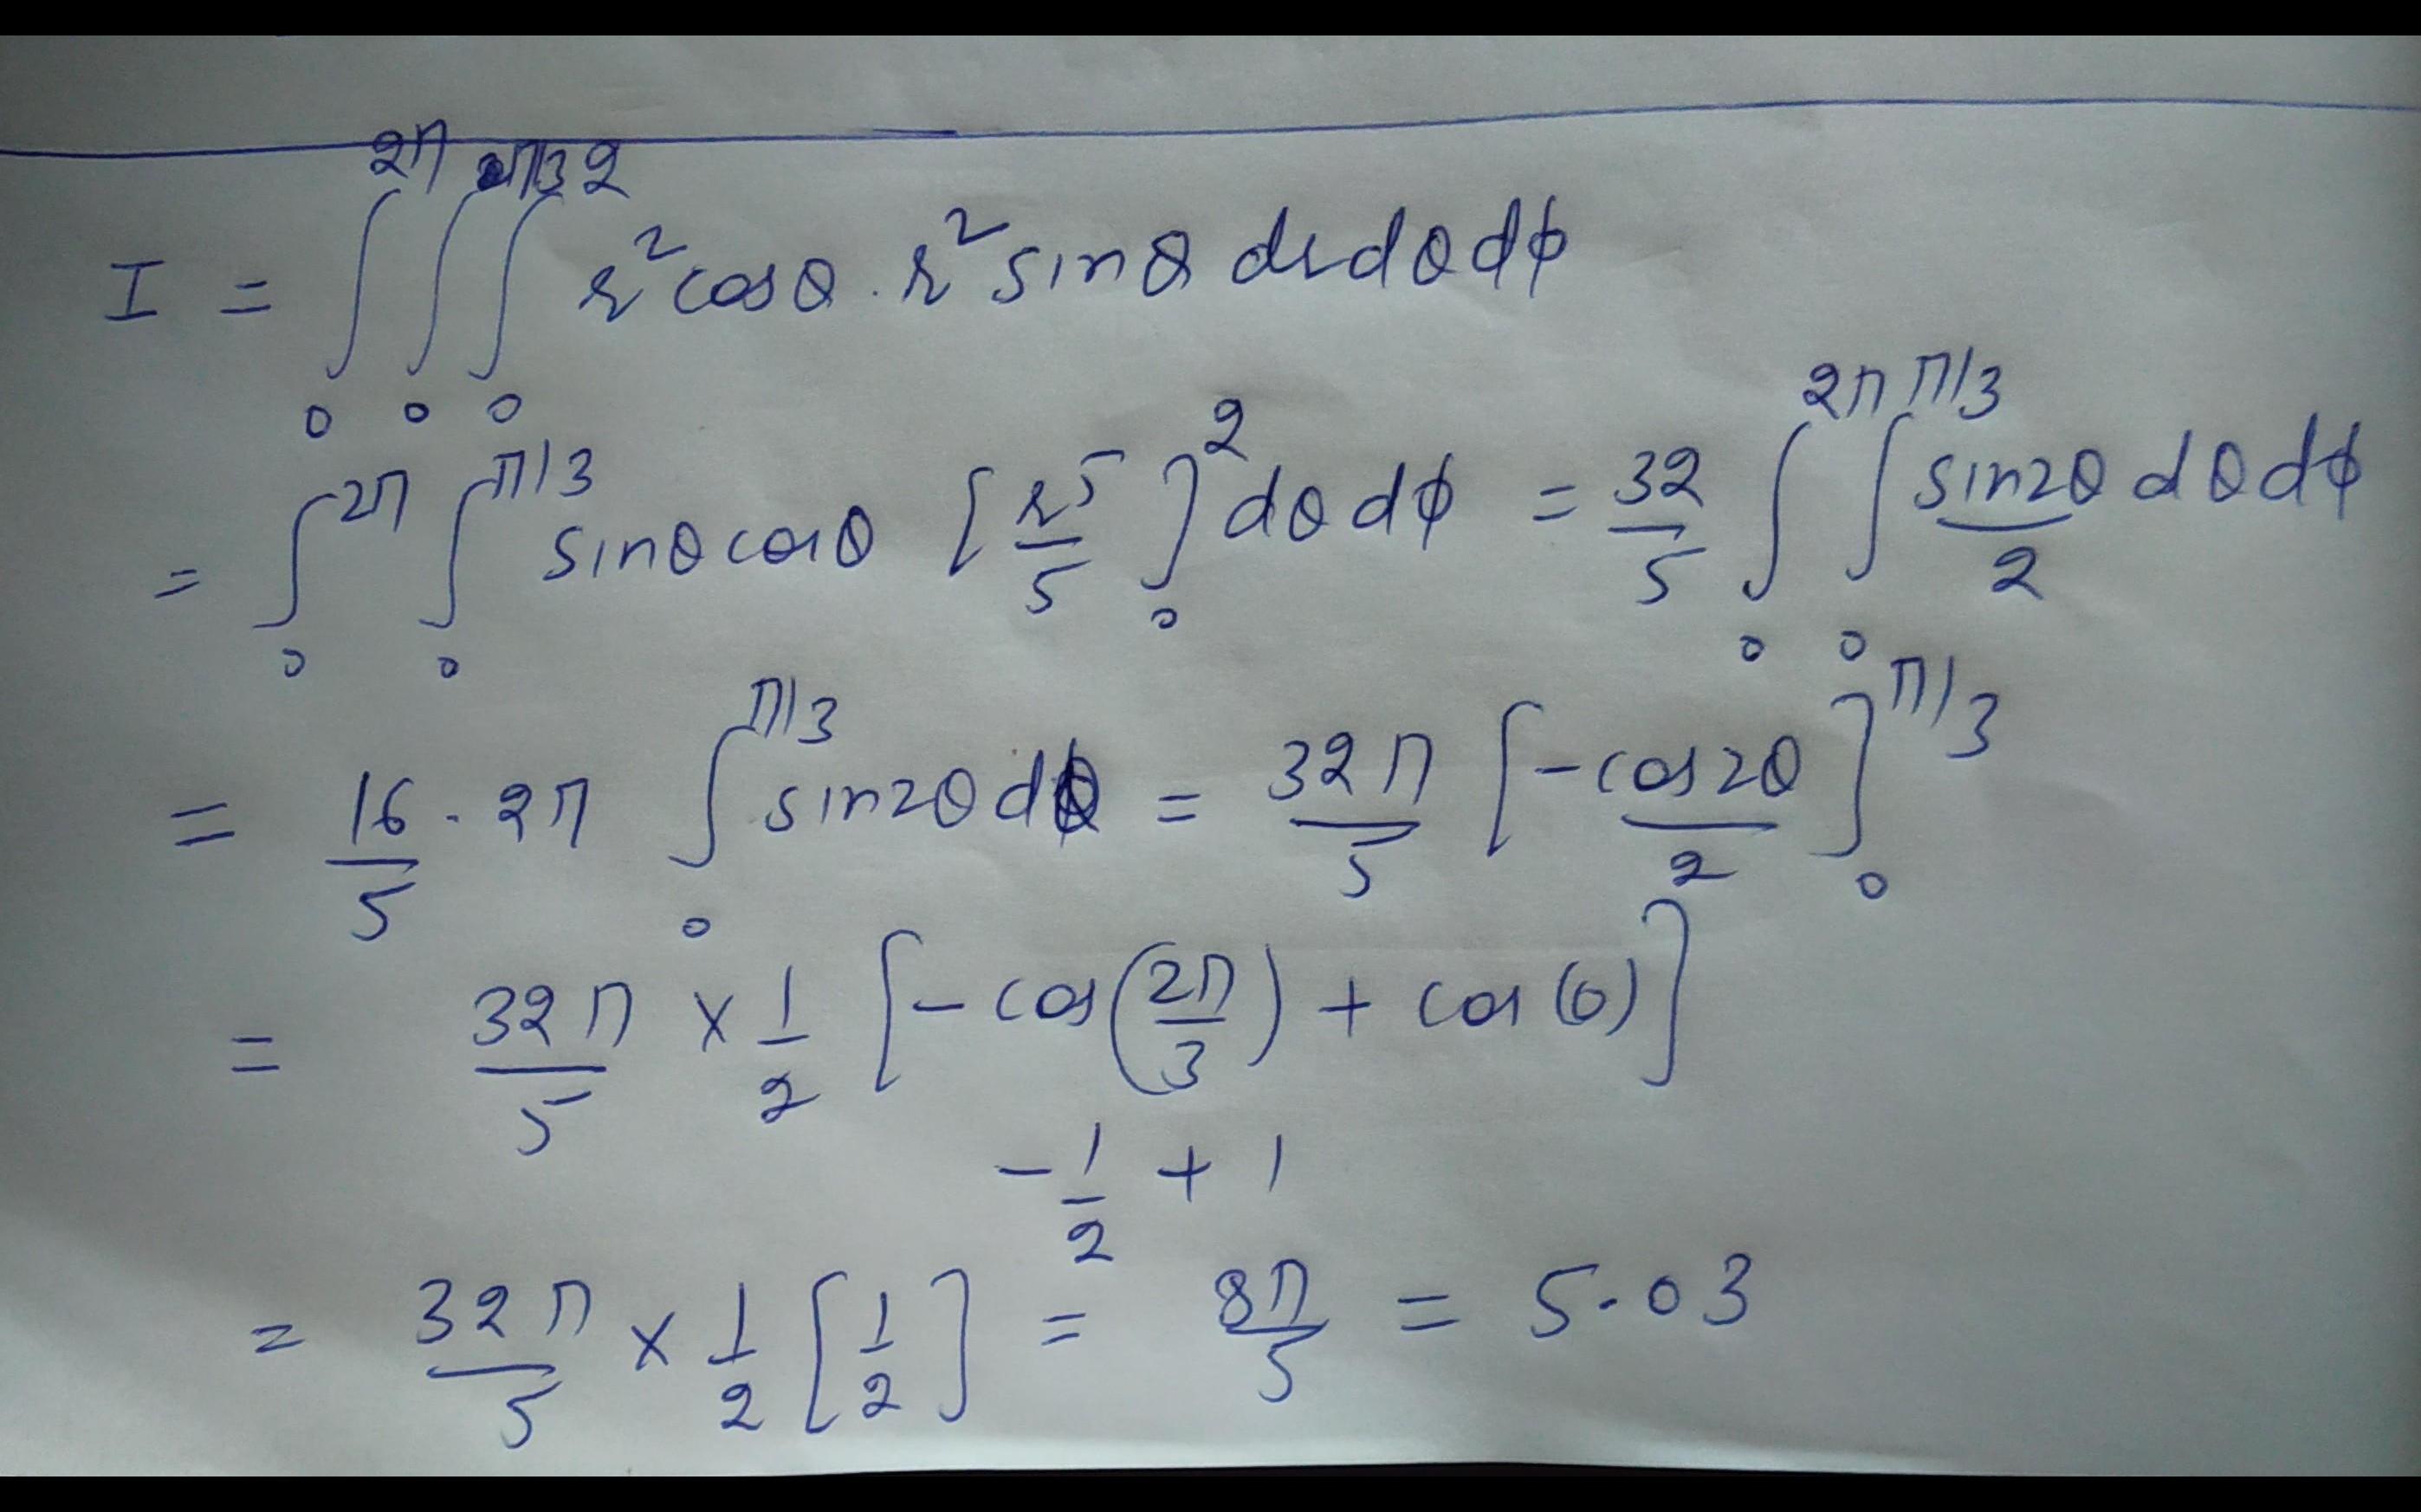 I = ∫₀^{2π} ∫₀^{π/3} ∫₀^{2} r² cosθ . r² sinθ dr dθ dϕ
= ∫₀^{2π} ∫₀^{π/3} sinθ cosθ [r⁵/5]₀² dθ dϕ = 32/5 ∫₀^{2π} ∫₀^{π/3} sin2θ/2 dθ dϕ
= 16/5 . 2π ∫₀^{π/3} sin2θ dθ = 32π/5 [-cos2θ/2]₀^{π/3}
= 32π/5 × 1/2 [-cos(2π/3) + cos(0)]
-1/2 + 1
= 32π/5 × 1/2 [1/2] = 8π/5 = 5.03